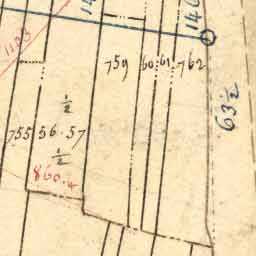 1123
14
140
759 60 61 762
63½
½
755 56 57
½
860.4